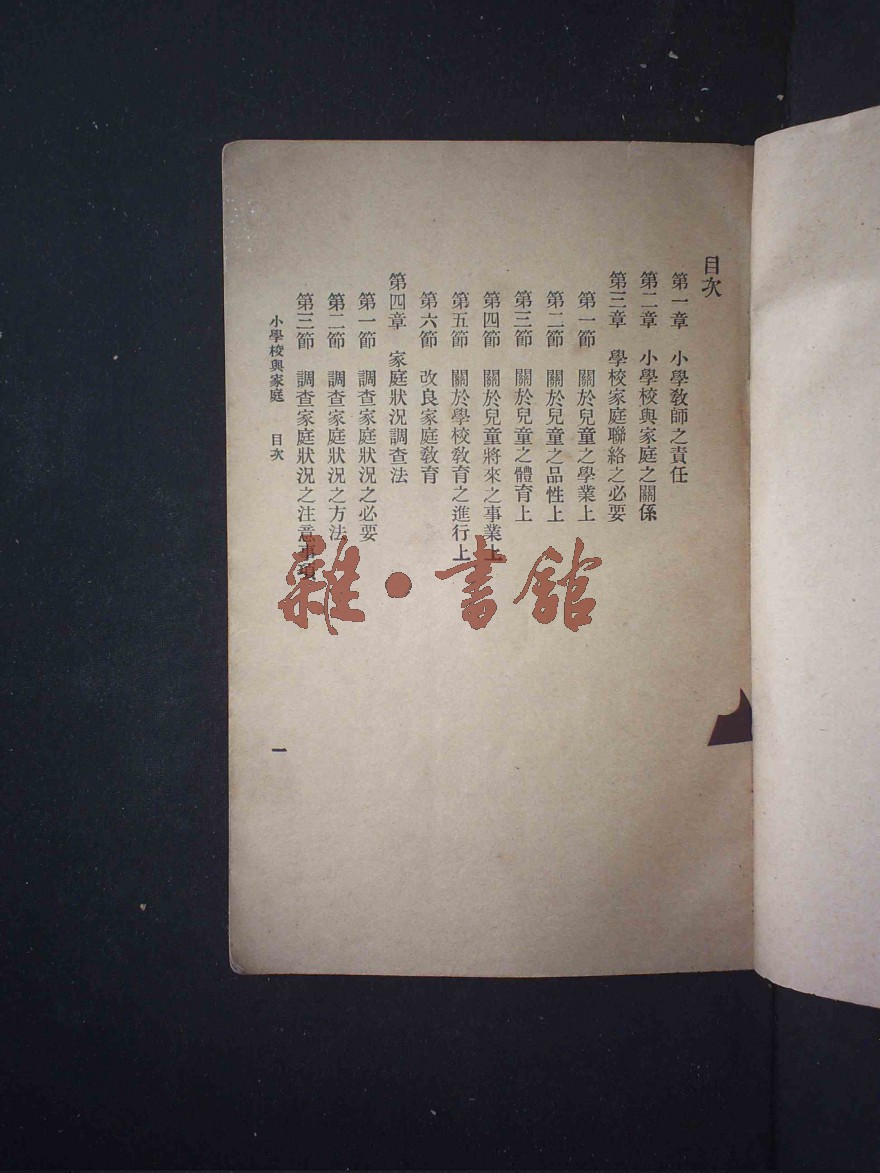 目次
第一章 小學教師之責任
第二章 小學校與家庭之關係
第三章 學校家庭聯絡之必要
第一節 關於兒童之學業上
第二節 關於兒童之品性上
第三節 關於兒童之體育上
第四節 關於兒童將來之事業上
第五節 關於學校教育之進行上
第六節 改良家庭教育
第四章 家庭狀況調查法
第一節 調查家庭狀況之必要
第二節 調查家庭狀況之方法
第三節 調查家庭狀況之注意事項
小學校與家庭 目次
一
雜·書館